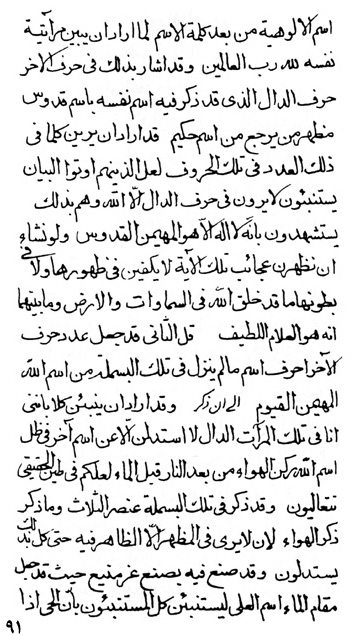 اسم الالوهية من بعد كلمة الاسم لما اراد ان يبين مرآتية
نفسه لله رب العالمين وقد اشار بذلك فى حرف الآخر
حرف الدال الذى قد ذكر فيه اسم نفسه باسم قدوس
مظهر من يرجع من اسم حكيم قد اراد ان يرين كلما فى
ذلك العدد فى تلك الحروف لعل الذينهم اوتوا البيان
يستنبئون لا يرون فى حرف الدال الا الله وهم بذلك
يستشهدون بانه لا اله الا هو المهيمن القدوس ولو نشاء
ان نظهرن عجائب تلك الآية لا يكفين فى ظهورها ولا فى
بطونها ما قد خلق الله فى السماوات والارض وما بينهما
انه هو العلام اللطيف قل الثانى قد جعل عدد حرف
الآخر احرف اسم ما لم ينزل فى تلك البسملة من اسم الله
المهيمن القيوم الى ان ذكر وقد اراد ان ينبئن كلا باننى
انا فى تلك المرآت الدال لا استدلن الا عن اسم آخر فى ظل
اسم الله ركن الهواء من بعد النار قبل الماء لعلكم فى طين الحقيقى
تتعاليون وقد ذكر فى تلك البسملة عنصر الثلاث وما ذكر
ذكر الهواء لان لا يرى فى المظهر الا الظاهر فيه حتى كل بذلك
يستدلون وقد صنع فيه بصنع عز منيع حيث قد جعل
مقام الماء اسم العلى ليستنبئن كل المستنبئون بان الحى اذا
٩١